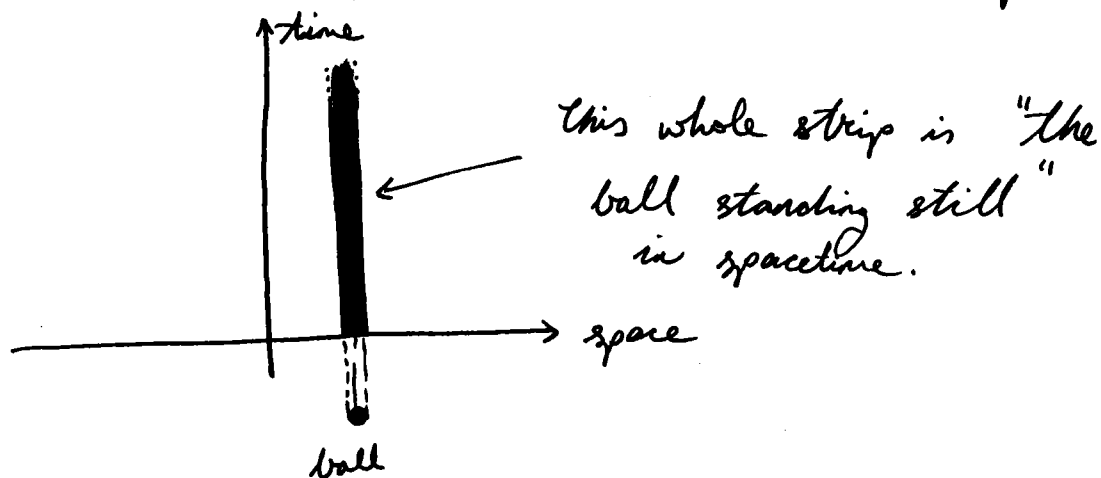 time
This whole strip is "the
ball standing still"
in spacetime.
space
ball